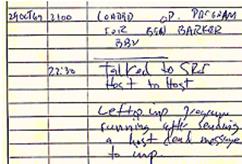 29 OCT 69 2100 LOADED OP. PROGRAM
FOR BEN BARKER
BBV
22:30 Talked to SRI
Host to Host
Left op. imp. program
running after sending
a host dead message
to imp.